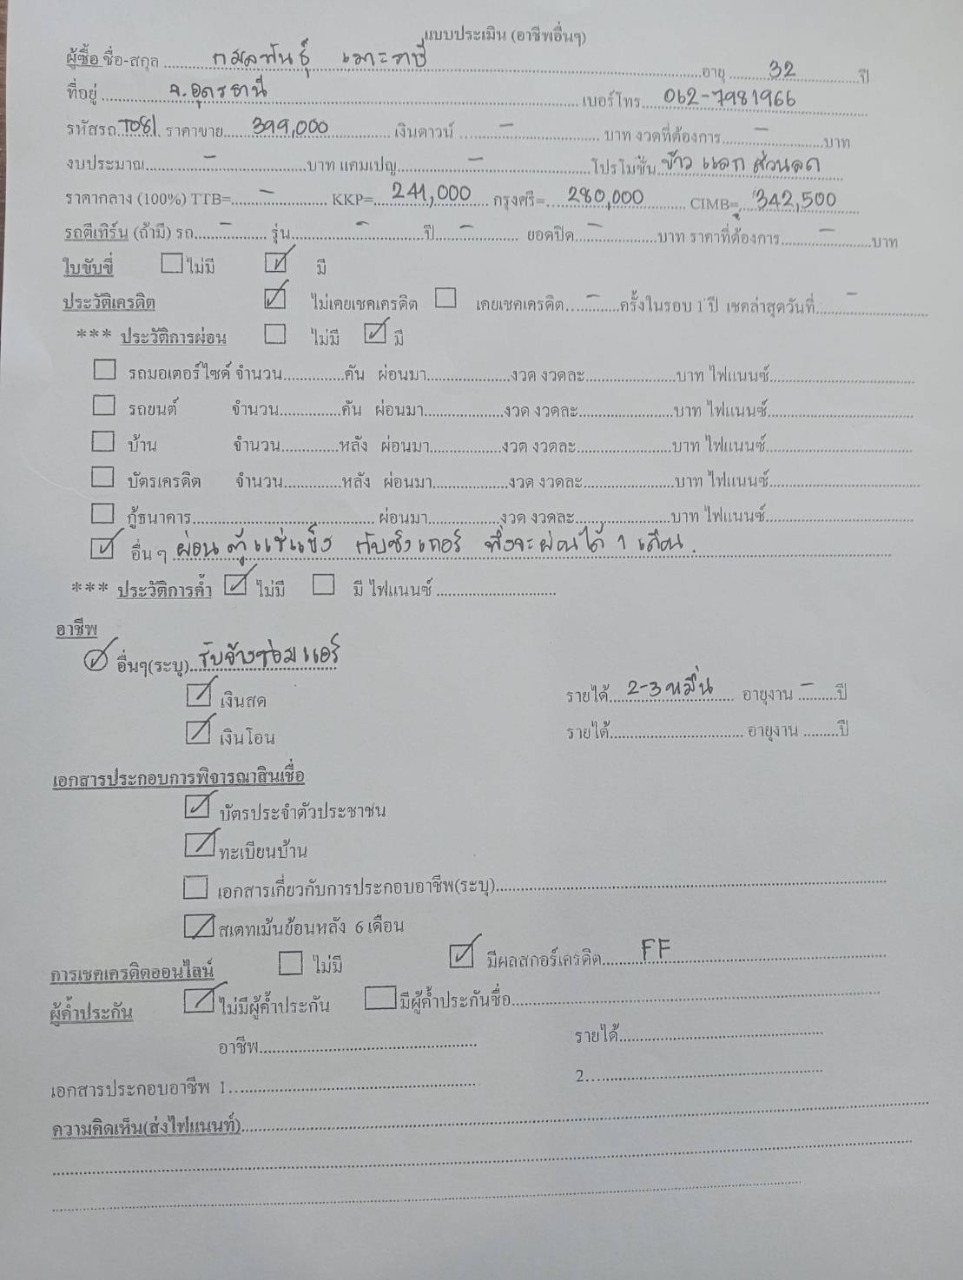 แบบประเมิน (อาชีพอื่นๆ)
ผู้ซื้อ ชื่อ-สกุล กมลพันธุ์ เมาะราษี อายุ 32 ปี
ที่อยู่ จ.อุดรธานี เบอร์โทร 062-7981966
รหัสรถ T081 ราคาขาย 399,000 เงินดาวน์ - บาท งวดที่ต้องการ - บาท
งบประมาณ - บาท แคมเปญ - โปรโมชั่น ข้าว แลก ส่วนลด
ราคากลาง (100%) TTB= - KKP= 241,000 กรุงศรี= 280,000 CIMB= 342,500
รถตีเทิร์น (ถ้ามี) รถ - รุ่น - ปี - ยอดปิด - บาท ราคาที่ต้องการ - บาท
ใบขับขี่ ไม่มี มี
ประวัติเครดิต ไม่เคยเชคเครดิต เคยเชคเครดิต - ครั้งในรอบ 1 ปี เชคล่าสุดวันที่ -
*** ประวัติการผ่อน ไม่มี มี
รถมอเตอร์ไซด์ จำนวน คัน ผ่อนมา งวด งวดละ บาท ไฟแนนซ์
รถยนต์ จำนวน คัน ผ่อนมา งวด งวดละ บาท ไฟแนนซ์
บ้าน จำนวน หลัง ผ่อนมา งวด งวดละ บาท ไฟแนนซ์
บัตรเครดิต จำนวน หลัง ผ่อนมา งวด งวดละ บาท ไฟแนนซ์
กู้ธนาคาร ผ่อนมา งวด งวดละ บาท ไฟแนนซ์
อื่น ๆ ผ่อน ตู้แช่แข็ง กับซิงเกอร์ พึ่งจะผ่อนได้ 1 เดือน.
*** ประวัติการค้ำ ไม่มี มี ไฟแนนซ์
อาชีพ
อื่นๆ(ระบุ) รับจ้างซ่อมแอร์
เงินสด รายได้ 2-3 หมื่น อายุงาน - ปี
เงินโอน รายได้ อายุงาน ปี
เอกสารประกอบการพิจารณาสินเชื่อ
บัตรประจำตัวประชาชน
ทะเบียนบ้าน
เอกสารเกี่ยวกับการประกอบอาชีพ(ระบุ)
สเตทเม้นย้อนหลัง 6 เดือน
การเชคเครดิตออนไลน์ ไม่มี มีผลสกอร์เครดิต FF
ผู้ค้ำประกัน ไม่มีผู้ค้ำประกัน มีผู้ค้ำประกันชื่อ
อาชีพ รายได้
เอกสารประกอบอาชีพ 1. 2.
ความคิดเห็น(ส่งไฟแนนท์)